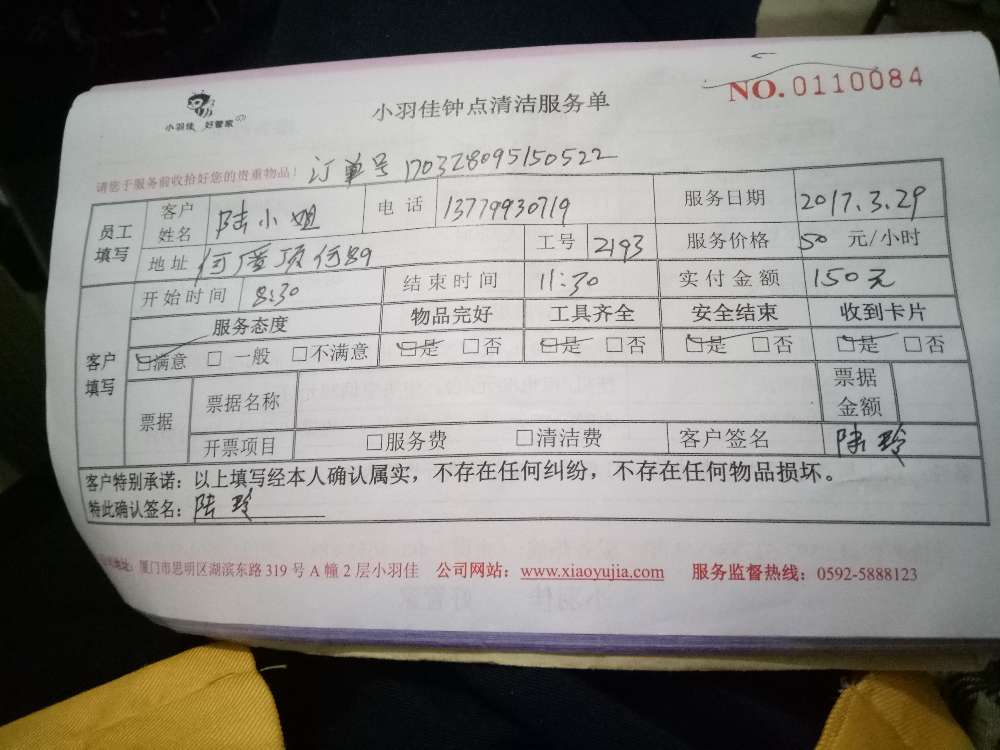 小羽佳 好管家
小羽佳钟点清洁服务单
NO. 0110084
请您于服务前收拾好您的贵重物品! 订单号 170328095150522
员工填写 客户姓名 陆小姐 电话 13779930719 服务日期 2017.3.29
地址 工号 2193 服务价格 50 元/小时
开始时间 8:30 结束时间 11:30 实付金额 150元
服务态度 物品完好 工具齐全 安全结束 收到卡片
客户填写 ☑满意 □ 一般 □不满意 ☑是 □否 ☑是 □否 ☑是 □否 ☑是 □否
票据 票据名称 票据金额
开票项目 □服务费 □清洁费 客户签名 陆玲
客户特别承诺：以上填写经本人确认属实，不存在任何纠纷，不存在任何物品损坏。
特此确认签名：陆玲
地址：厦门市思明区湖滨东路 319 号 A 幢 2 层小羽佳 公司网站：www.xiaoyujia.com 服务监督热线：0592-5888123